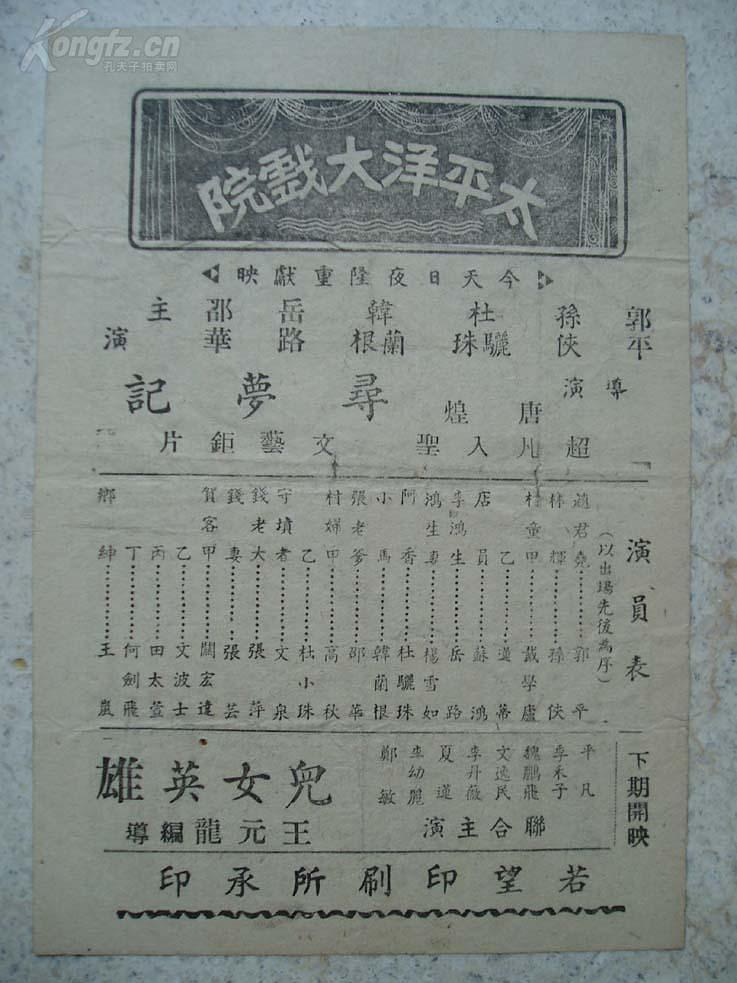 Kongfz.cn
孔夫子拍卖网
太平洋大戲院
今天日夜隆重獻映
郭平
孫俠
杜驪珠
韓蘭根
岳路
邵華
主演
導演
唐煌
尋夢記
超凡入聖
文藝鉅片
演員表
(以出場先後為序)
趙君堯…………郭平
林輝…………孫俠
村童甲…………戴學廬
乙…………蓮蒂
店員…………蘇鴻
李鴻生…………岳路
鴻生妻…………楊雪如
阿香…………杜驪珠
小馬…………韓蘭根
張老爹…………邵華
村婦甲…………高秋
乙…………杜小珠
守墳者…………文泉
錢老大…………張萍
錢妻…………張芸
賀客甲…………關宏達
乙…………文波士
丙…………田太萱
丁…………何劍飛
鄉紳…………王嵐
下期開映
平凡
李禾子
魏鵬飛
文逸民
李丹薇
夏蓮
李幼麗
鄭敏
聯合主演
兒女英雄
王元龍編導
若望印刷所承印